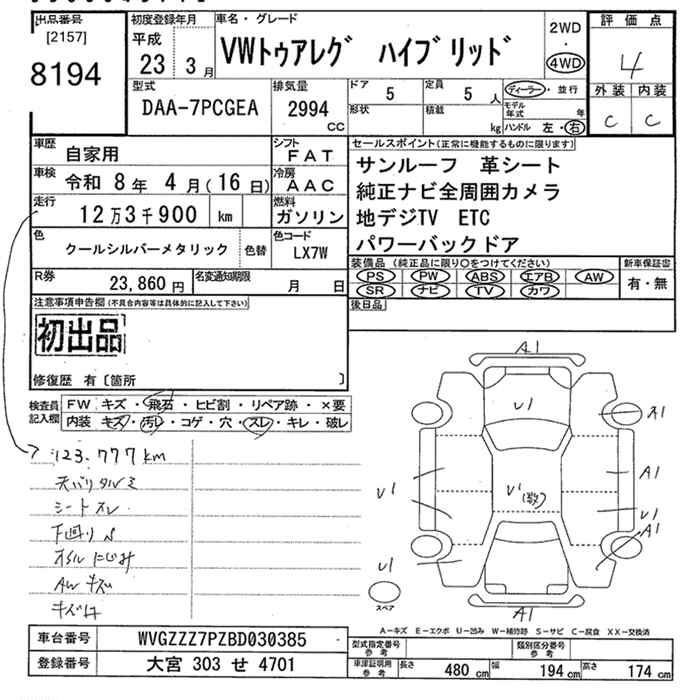 出品番号
[2157]
8194
初度登録年月
平成
23 3月
車名・グレード
VWトゥアレグ ハイブリッド
2WD
・
4WD
評価点
4
外装 内装
C C
型式
DAA-7PCGEA
排気量
2994
CC
ドア
5
定員
5 人
形状
積載
kg
ディーラー・並行
モデル年式 年
ハンドル 左・右
車歴
自家用
シフト
FAT
車検
令和 8年 4月(16日)
冷房
AAC
走行
12万3千900 km
燃料
ガソリン
色
クールシルバーメタリック
色替
色コード
LX7W
R券
23,860円
名変通知期限
月 日
セールスポイント(正常に機能するものに限ります)
サンルーフ 革シート
純正ナビ全周囲カメラ
地デジTV ETC
パワーバックドア
装備品(純正品に限り○をつけてください)
PS PW ABS エアB AW
SR ナビ TV カワ
新車保証書
有・無
後日品
注意事項申告欄(不具合内容等は具体的に記入して下さい)
初出品
修復歴 有〔箇所 〕
検査員記入欄
FW キズ・飛石・ヒビ割・リペア跡・×要
内装 キズ・汚レ・コゲ・穴・スレ・キレ・破レ
123.777km
天バリタルミ
シートスレ
下廻りS
オイルにじみ
AWキズ
A1
U1
A1
A1
U1
U1
(数)
U1
A1
U1
A1
スペア
A-キズ E-エクボ U-凹み W-補修跡 S-サビ C-腐食 XX-交換済
車台番号
WVGZZZ7PZBD030385
登録番号
大宮 303 せ 4701
型式指定番号
参考
類別区分番号
参考
車庫証明用
参考
長さ 480cm 幅 194cm 高さ 174cm